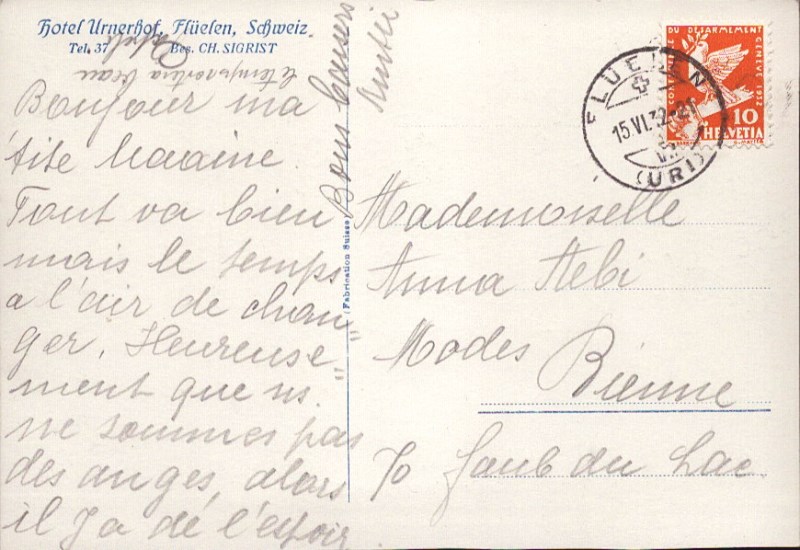 Hotel Urnerhof, Flüelen, Schweiz
Tel. 37 Bes. CH. SIGRIST
Bonjour ma
'tite Maraine.
Tout va bien
mais le temps
a l'air de chan"
ger. Heureuse"
ment que ns.
ne sommes pas
des anges, alors
il y a de l'espoir
le temps sortira beau
Bons baisers
(Fabrication Suisse)
CONFERENCE DU DESARMEMENT GENEVE 1932
10
HELVETIA
FLUELEN
15.VI.32-21
(URI)
Mademoiselle
Anna Aebi
Modes
Bienne
Faub du Lac